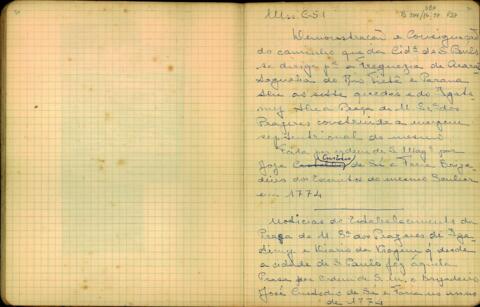 Mss. C-51
Demonstração e Consignação
do caminho que da Cid.e de S. Paulo
se dirige p.a a Freguezia de Arara
Rio Tieté e Parana
as sete quedas e do Igate
my Praça de N. Sr.a dos
Prazeres construida a margem
septentrional do mesmo
Feita por ordem de S. Mag.e por
Custodio
José de Sá e Faria Briga
deiro dos Exercitos do mesmo Senhor
em 1774
Noticias do Estabelecimento da
Praça de N. S.a dos Prazeres de Iga
timy e Diario da Viagem q̃ desde
a cidade de S. Paulo fez áquela
Praça por ordem de S. M. o Brigadeiro
José Custodio de Sá e Faria no anno
de 1774